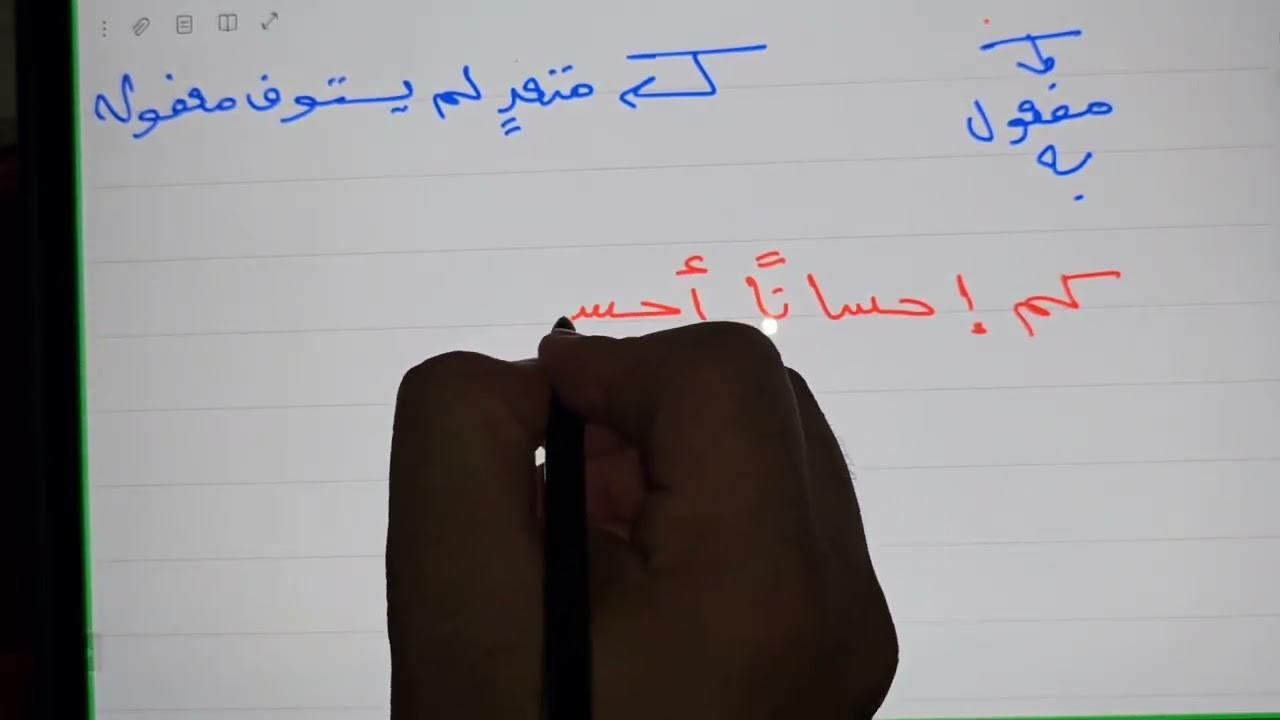 مفعول
به
متعدٍ لم يستوف مفعوله
كم إحسانًا أحس